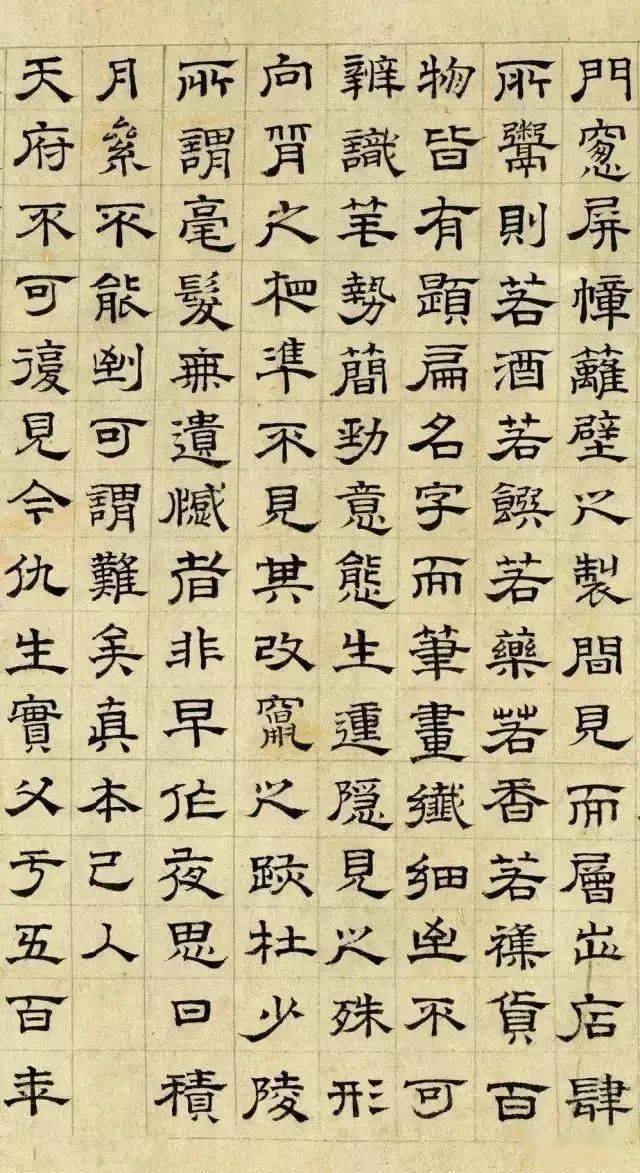 門窻屏幛籬壁之製間見而層出店肆
所鬻則若酒若饌若藥若香若襍貨百
物皆有題扁名字而筆畫纖細至不可
辨識筆勢簡勁意態生運隱見之殊形
向背之相準不見其改竄之跡杜少陵
所謂毫髮無遺憾者非早作夜思日積
月絫不能到可謂難矣真本已入
天府不可復見今仇生實父亏五百年